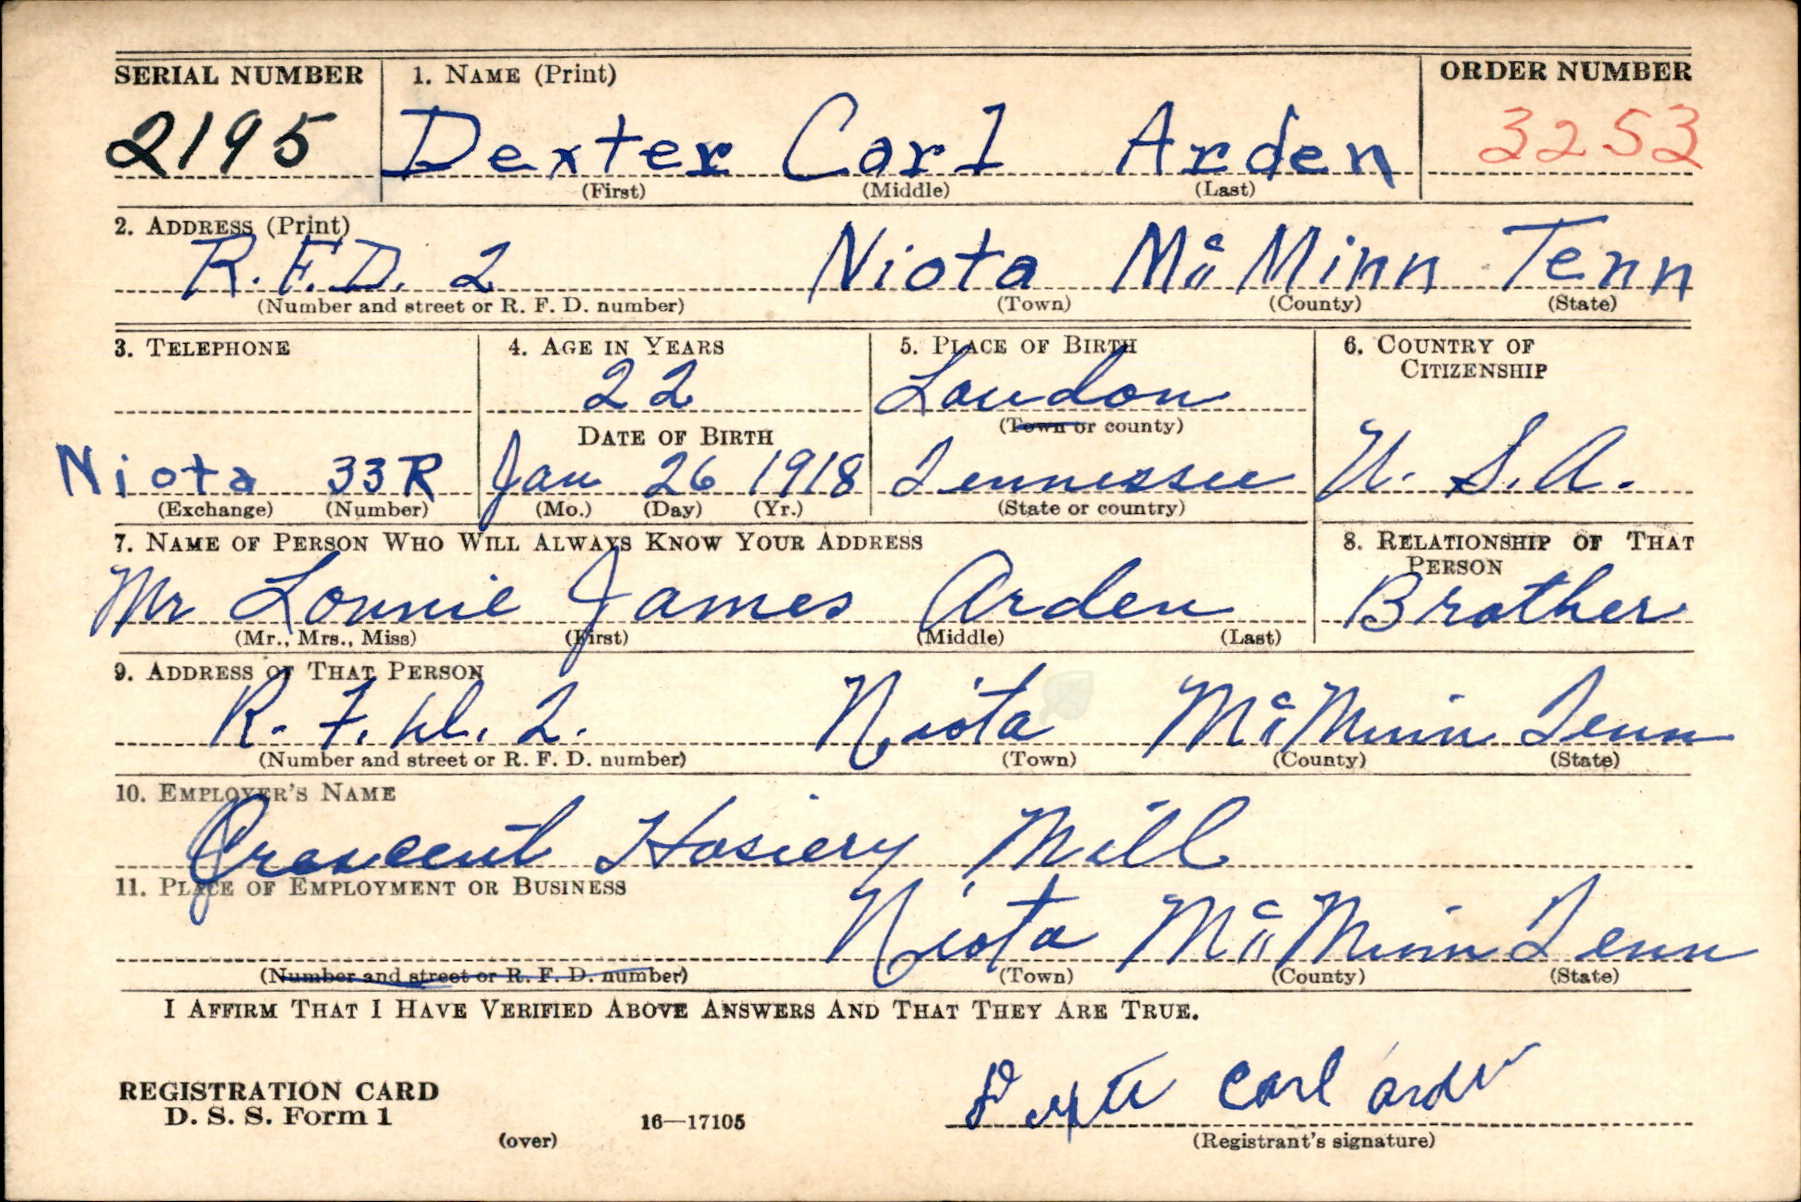 SERIAL NUMBER 1. NAME (Print) ORDER NUMBER
2195 Dexter Carl Arden 3253
(First) (Middle) (Last)
2. ADDRESS (Print)
R.F.D. 2 Niota Mc Minn Tenn
(Number and street or R. F. D. number) (Town) (County) (State)
3. TELEPHONE 4. AGE IN YEARS 5. PLACE OF BIRTH 6. COUNTRY OF
CITIZENSHIP
22 Loudon
DATE OF BIRTH (Town or county)
Niota 33R Jan 26 1918 Tennessee U. S. A.
(Exchange) (Number) (Mo.) (Day) (Yr.) (State or country)
7. NAME OF PERSON WHO WILL ALWAYS KNOW YOUR ADDRESS 8. RELATIONSHIP OF THAT
PERSON
Mr Lonnie James Arden Brother
(Mr., Mrs., Miss) (First) (Middle) (Last)
9. ADDRESS OF THAT PERSON
R. F. D. 2. Niota Mc Minn Tenn
(Number and street or R. F. D. number) (Town) (County) (State)
10. EMPLOYER'S NAME
Crescent Hosiery Mill
11. PLACE OF EMPLOYMENT OR BUSINESS
Niota Mc Minn Tenn
(Number and street or R. F. D. number) (Town) (County) (State)
I AFFIRM THAT I HAVE VERIFIED ABOVE ANSWERS AND THAT THEY ARE TRUE.
Dexter Carl Arden
REGISTRATION CARD
D. S. S. Form 1 16—17105
(over) (Registrant's signature)